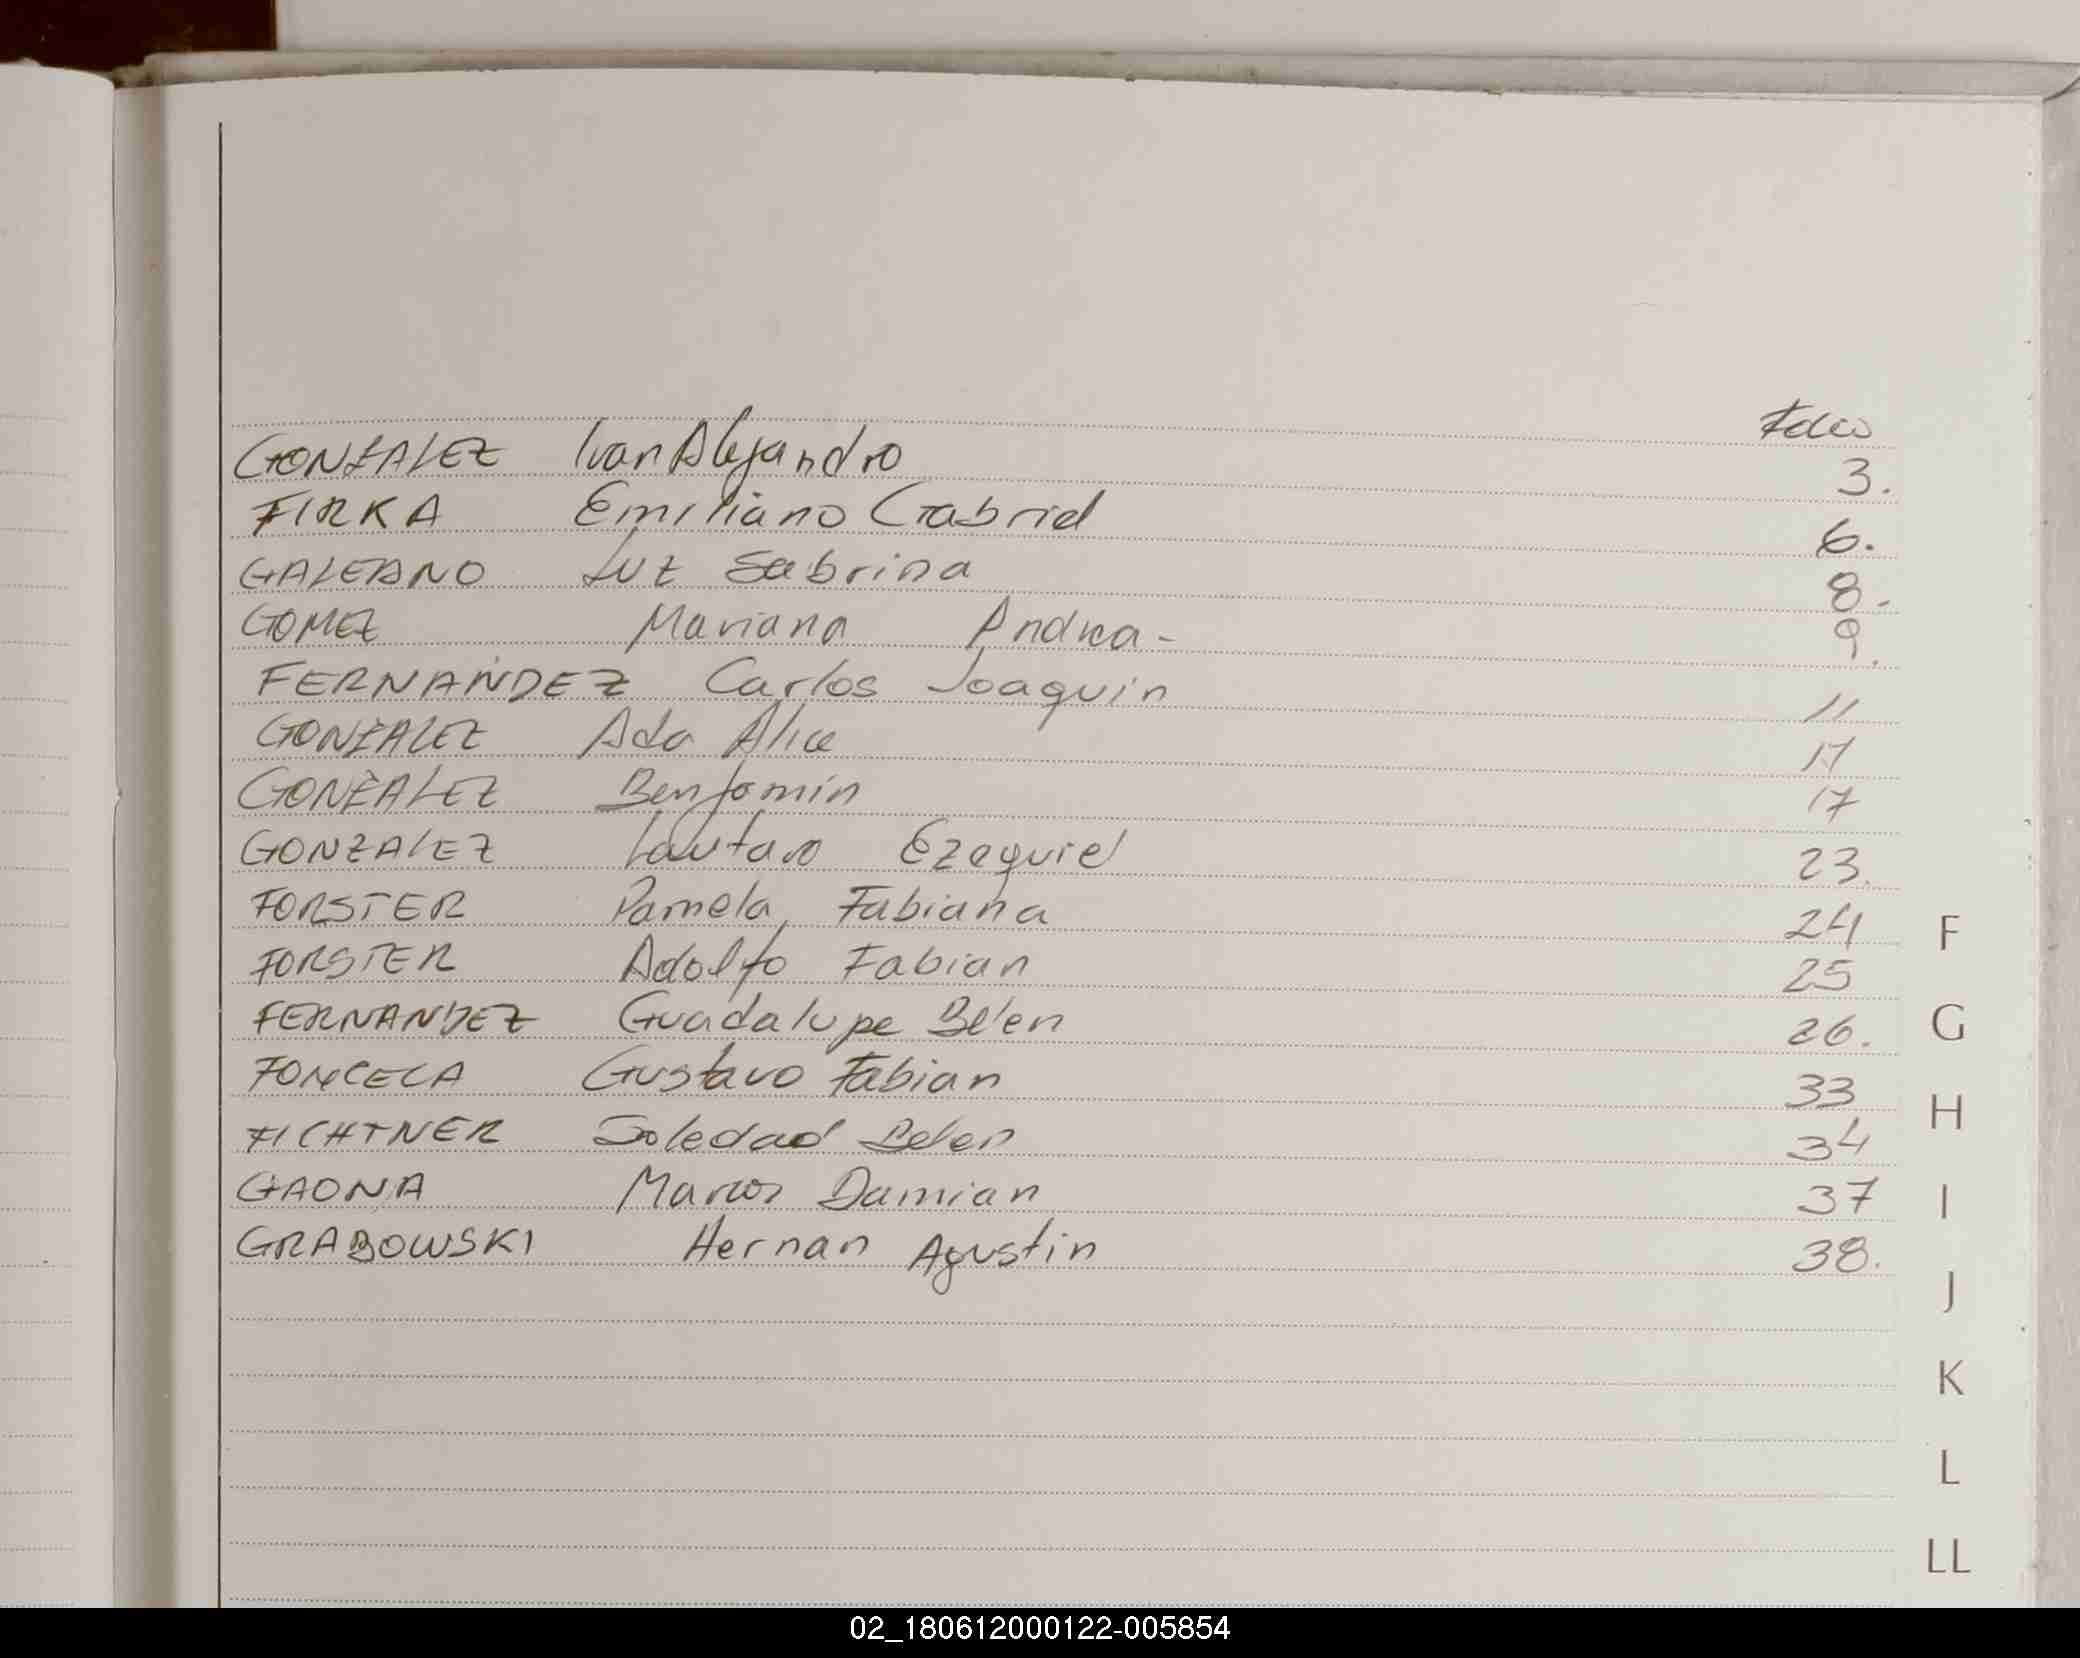 Folio
GONZALEZ Ivan Alejandro 3.
FIRKA Emiliano Gabriel 6.
GALEANO Luz Sabrina 8.
GOMEZ Mariana Andrea - 9.
FERNANDEZ Carlos Joaquin 11
GONZALEZ Ada Alice 17
GONZALEZ Benjamin 17
GONZALEZ Lautaro Ezequiel 23.
FORSTER Pamela Fabiana 24
FORSTER Adolfo Fabian 25
FERNANDEZ Guadalupe Belen 26.
FONCECA Gustavo Fabian 33
FICHTNER Soledad Belen 34
GAONA Marcos Damian 37
GRABOWSKI Hernan Agustin 38.
F
G
H
I
J
K
L
LL
02_180612000122-005854